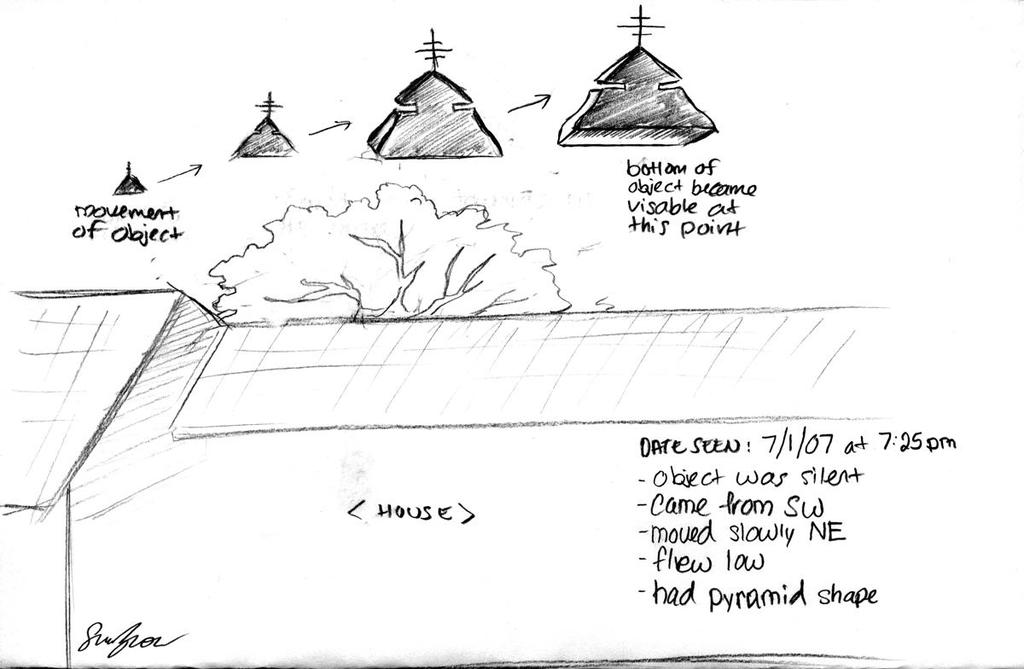 movement
of object
bottom of
object became
visable at
this point
DATE SEEN: 7/1/07 at 7:25pm
- object was silent
- Came from SW
- moved slowly NE
- flew low
- had pyramid shape
< HOUSE >